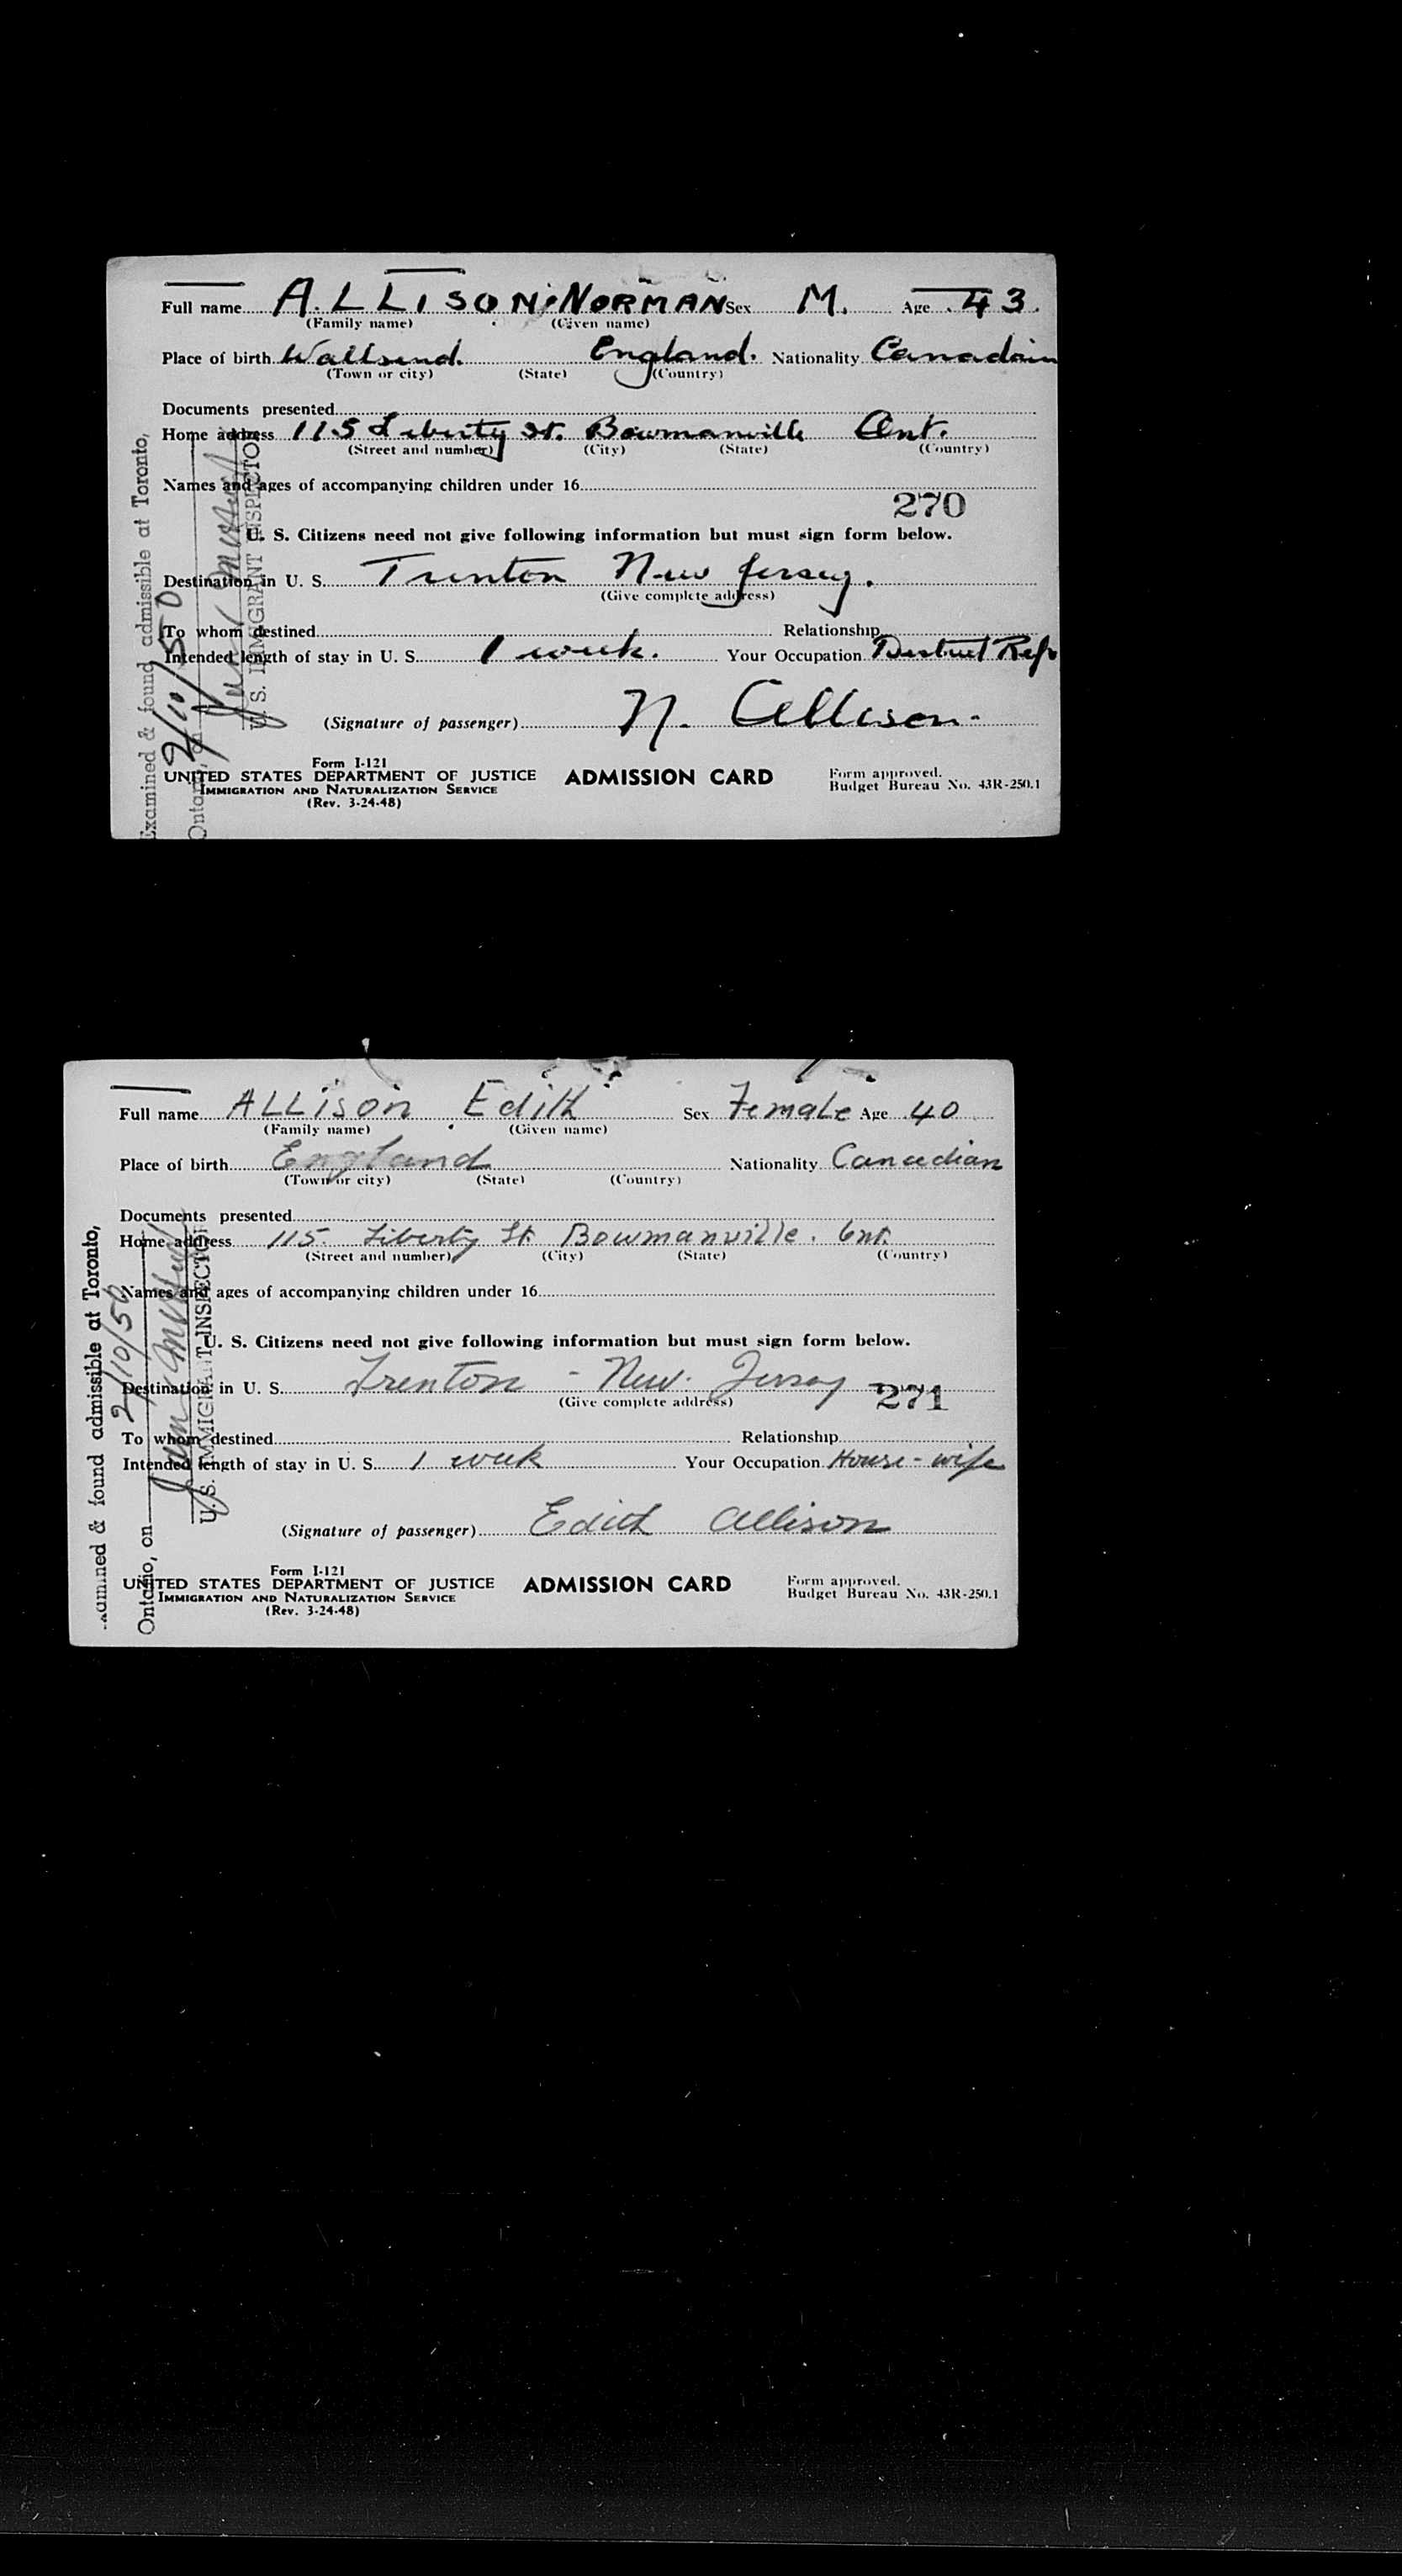 Full name ALLISON NORMAN Sex M. Age 43.
(Family name) (Given name)
Place of birth Wallsend England. Nationality Canadain
(Town or city) (State) (Country)
Documents presented
Home address 115 Liberty St. Bowmanville Ont.
(Street and number) (City) (State) (Country)
Names and ages of accompanying children under 16
270
U. S. Citizens need not give following information but must sign form below.
Destination in U. S. Trenton New Jersey.
(Give complete address)
To whom destined Relationship
Intended length of stay in U. S. 1 week. Your Occupation District Repr
(Signature of passenger) N. Allison.
Form I-121
UNITED STATES DEPARTMENT OF JUSTICE ADMISSION CARD Form approved.
IMMIGRATION AND NATURALIZATION SERVICE Budget Bureau No. 43R-250.1
(Rev. 3-24-48)
Examined & found admissible at Toronto,
Ontario, on 2/10/50
U. S. IMMIGRANT INSPECTOR
Full name ALLISON Edith Sex Female Age 40
(Family name) (Given name)
Place of birth England Nationality Canadian
(Town or city) (State) (Country)
Documents presented
Home address 115 Liberty St Bowmanville. Ont.
(Street and number) (City) (State) (Country)
Names and ages of accompanying children under 16
U. S. Citizens need not give following information but must sign form below.
Destination in U. S. Trenton - New. Jersey 271
(Give complete address)
To whom destined Relationship
Intended length of stay in U. S. 1 week Your Occupation House-wife
(Signature of passenger) Edith Allison
Form I-121
UNITED STATES DEPARTMENT OF JUSTICE ADMISSION CARD Form approved.
IMMIGRATION AND NATURALIZATION SERVICE Budget Bureau No. 43R-250.1
(Rev. 3-24-48)
Examined & found admissible at Toronto,
Ontario, on 2/10/50
U. S. IMMIGRANT INSPECTOR